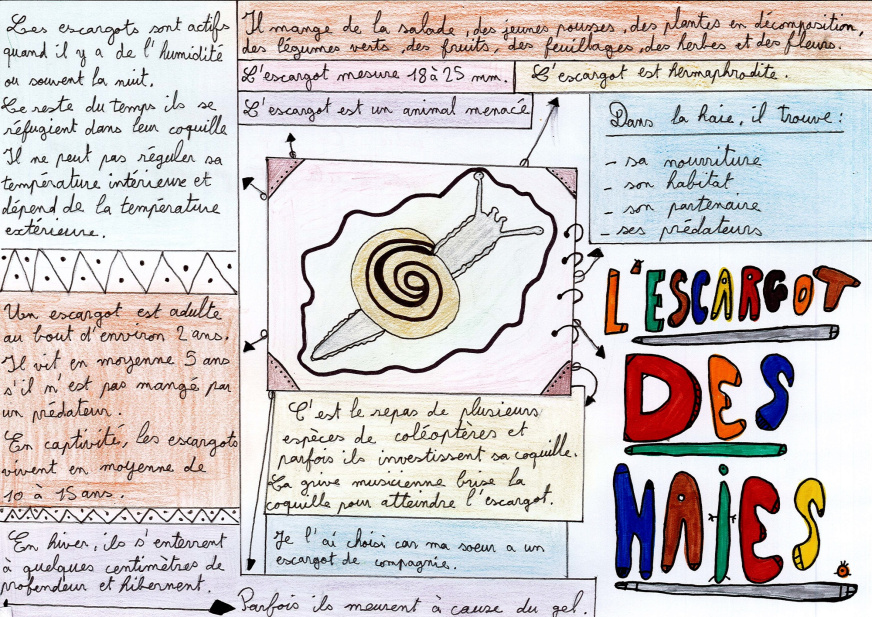 Les escargots sont actifs
quand il y a de l'humidité
ou souvent la nuit.
Le reste du temps ils se
réfugient dans leur coquille
Il ne peut pas réguler sa
température intérieure et
dépend de la température
extérieure.
Un escargot est adulte
au bout d'environ 2 ans.
Il vit en moyenne 5 ans
s'il n'est pas mangé par
un prédateur.
En captivité, les escargots
vivent en moyenne de
10 à 15 ans.
En hiver, ils s'enterrent
à quelques centimètres de
profendeur et hibernent.
Il mange de la salade, des jeunes pousses, des plantes en décomposition,
des légumes verts, des fruits, des feuillages, des herbes et des fleurs.
L'escargot mesure 18 à 25 mm.
L'escargot est hermaphrodite.
L'escargot est un animal menacé
Dans la haie, il trouve :
- sa nourriture
- son habitat
- son partenaire
- ses prédateurs
L'ESCARGOT
DES
HAIES
C'est le repas de plusieurs
espèces de coléoptères et
parfois ils investissent sa coquille.
La grive musicienne brise la
coquille pour atteindre l'escargot.
Je l'ai choisi car ma soeur a un
escargot de compagnie.
Parfois ils meurent à cause du gel.